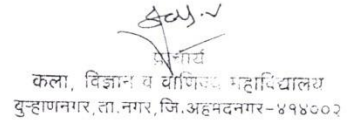 प्राचार्य
कला, विज्ञान व वाणिज्य महाविद्यालय
बुऱ्हाणनगर, ता.नगर, जि.अहमदनगर-४१४००२